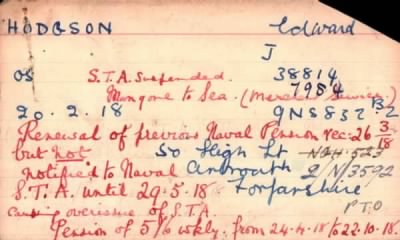 HODGSON Edward
J
OS S.T.A. Suspended. 38814
Man gone to Sea. (Mercht Service.) 7984
20.2.18 9NS832 B2
Renewal of previous Naval Pension rec. 26 3/18
but not 50 High St N24.523
notified to Naval Arbroath 2/N/3592
S.T.A. until 29.5.18 Forfarshire
Causing overissue of S.T.A. P.T.O
Pension of 5/6 wkly. from 24.4.18 to 22.10.18.